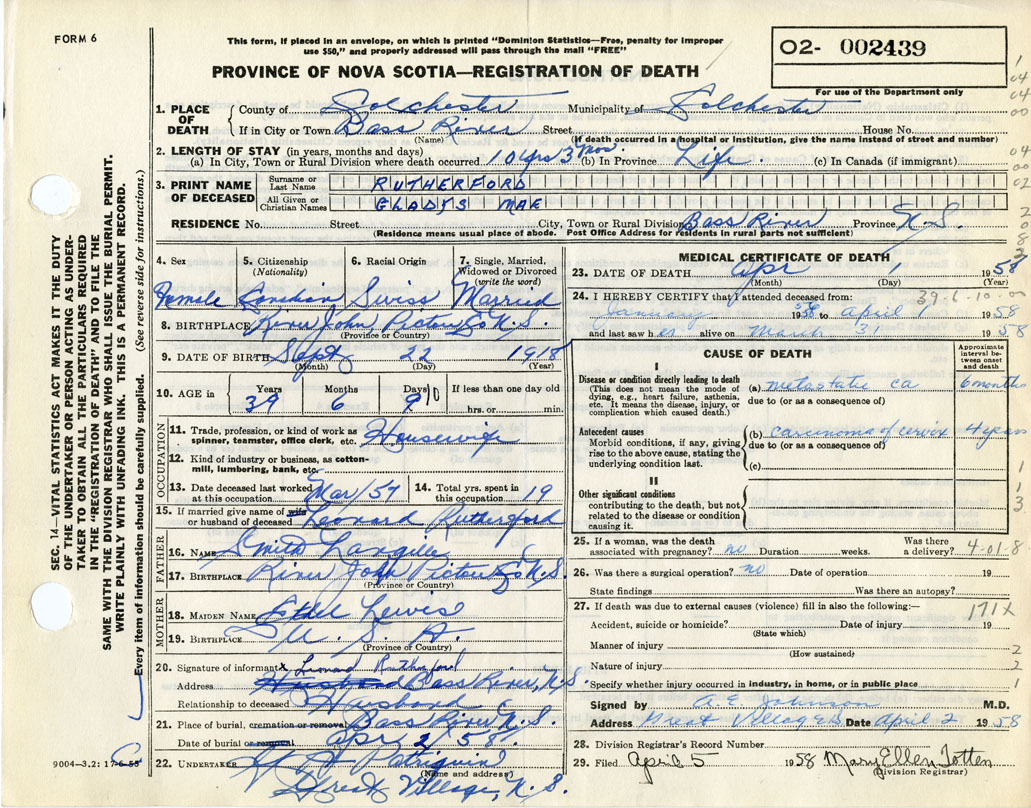 FORM 6
This form, if placed in an envelope, on which is printed "Dominion Statistics—Free, penalty for improper
use $50," and properly addressed will pass through the mail "FREE"
02- 002439
For use of the Department only
PROVINCE OF NOVA SCOTIA—REGISTRATION OF DEATH
1. PLACE OF DEATH
County of Colchester Municipality of Colchester
If in City or Town Bass River Street House No.
(Name) (If death occurred in a hospital or institution, give the name instead of street and number)
2. LENGTH OF STAY (in years, months and days)
(a) In City, Town or Rural Division where death occurred 10 yrs 3 mos. (b) In Province Life. (c) In Canada (if immigrant)
3. PRINT NAME OF DECEASED
Surname or Last Name RUTHERFORD
All Given or Christian Names GLADYS MAE
RESIDENCE No. Street City, Town or Rural Division Bass River Province N.S.
(Residence means usual place of abode. Post Office Address for residents in rural parts not sufficient)
4. Sex 5. Citizenship (Nationality) 6. Racial Origin 7. Single, Married, Widowed or Divorced (write the word)
Female Canadian Swiss Married
8. BIRTHPLACE River John, Pictou Co N.S.
(Province or Country)
9. DATE OF BIRTH Sept 22 1918
(Month) (Day) (Year)
10. AGE in Years Months Days If less than one day old
39 6 9 10 hrs. or min.
OCCUPATION
11. Trade, profession, or kind of work as spinner, teamster, office clerk, etc. Housewife
12. Kind of industry or business, as cotton-mill, lumbering, bank, etc.
13. Date deceased last worked at this occupation Mar/57 14. Total yrs. spent in this occupation 19
15. If married give name of wife or husband of deceased Leonard Rutherford
FATHER
16. NAME Smith Langille
17. BIRTHPLACE River John Pictou Co N.S.
(Province or Country)
MOTHER
18. MAIDEN NAME Ethel Lewis
19. BIRTHPLACE U. S. A.
(Province or Country)
20. Signature of informant x Leonard Rutherford
Address Husband Bass River, N.S.
Relationship to deceased Husband
21. Place of burial, cremation or removal Bass River N.S.
Date of burial or removal Apr 2 58
22. UNDERTAKER Patriquin
(Name and address)
Great Village, N.S.
9004—3.2: 17-6-55
MEDICAL CERTIFICATE OF DEATH
23. DATE OF DEATH Apr 1 1958
(Month) (Day) (Year)
24. I HEREBY CERTIFY that I attended deceased from: 39-6-10
January 1958 to April 1 1958
and last saw her alive on March 31 1958
CAUSE OF DEATH
Approximate interval between onset and death
I
Disease or condition directly leading to death
(This does not mean the mode of dying, e.g., heart failure, asthenia, etc. It means the disease, injury, or complication which caused death.)
(a) metastatic ca 6 months
due to (or as a consequence of)
Antecedent causes
Morbid conditions, if any, giving rise to the above cause, stating the underlying condition last.
(b) carcinoma of cervix 4 years
due to (or as a consequence of)
(c)
II
Other significant conditions
contributing to the death, but not related to the disease or condition causing it.
25. If a woman, was the death associated with pregnancy? no Duration weeks. Was there a delivery? 4-01-8
26. Was there a surgical operation? no Date of operation 19
State findings Was there an autopsy?
27. If death was due to external causes (violence) fill in also the following:— 171X
Accident, suicide or homicide? Date of injury 19
(State which)
Manner of injury
(How sustained)
Nature of injury
Specify whether injury occurred in industry, in home, or in public place
Signed by A. E. Johnson M.D.
Address Great Village NS Date April 2 1958
28. Division Registrar's Record Number
29. Filed April 5 1958 Mary Ellen Totten
(Division Registrar)
SEC. 14—VITAL STATISTICS ACT MAKES IT THE DUTY
OF THE UNDERTAKER OR PERSON ACTING AS UNDER-
TAKER TO OBTAIN ALL THE PARTICULARS REQUIRED
IN THE "REGISTRATION OF DEATH" AND TO FILE THE
SAME WITH THE DIVISION REGISTRAR WHO SHALL ISSUE THE BURIAL PERMIT.
WRITE PLAINLY WITH UNFADING INK. THIS IS A PERMANENT RECORD.
Every item of information should be carefully supplied. (See reverse side for instructions.)